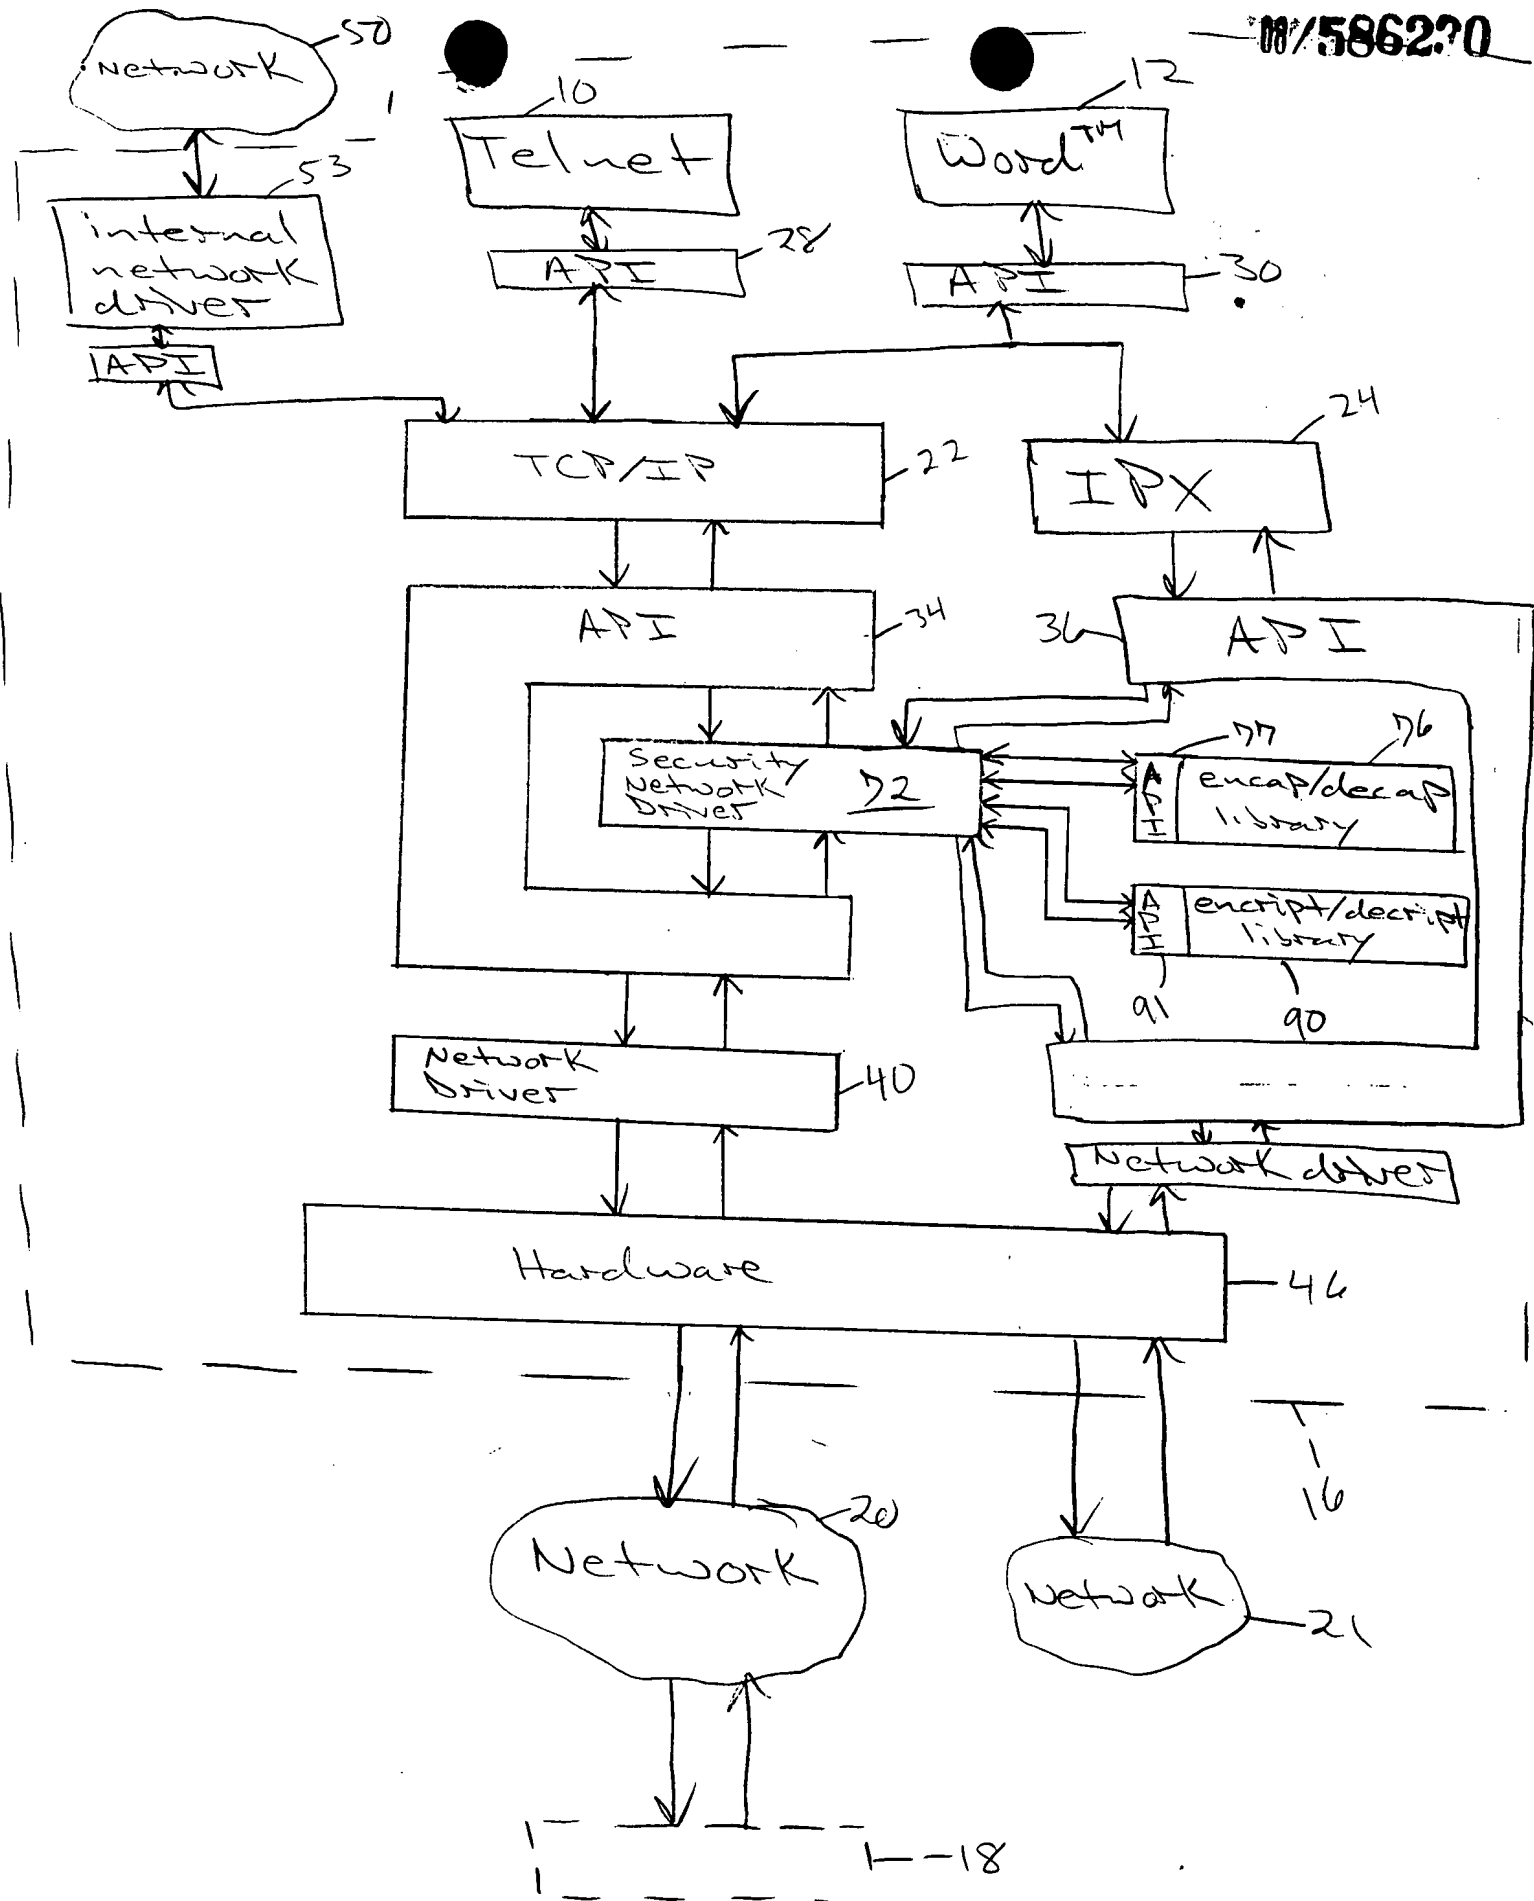 50
Network
10
12
Telnet
Word™
53
internal
network
driver
28
API
30
API
API
24
TCP/IP
22
IPX
API
34
36
API
77
76
Security
Network
Driver
72
API
encap/decap
library
API
encript/decript
library
91
90
Network
Driver
40
Network driver
Hardware
46
16
20
Network
Network
21
18